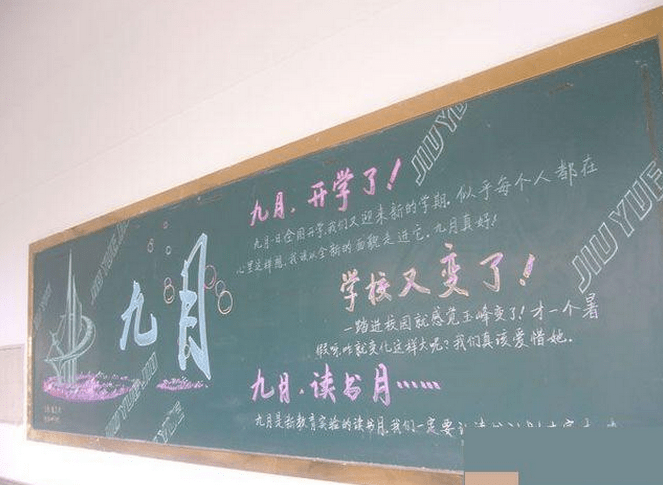 九月
九月，开学了！
九月一日全国开学，我们又迎来新的学期。似乎每个人都在
心里这样想，我该以全新的面貌走进它。九月真好！
学校又变了！
一踏进校园就感觉玉峰变了！才一个暑
假呀咋就变化这样大呢？我们真该爱惜她。
九月，读书月……
九月是新教育实验的读书月，我们一定要
JIU YUE
JIU YUE
JIU YUE